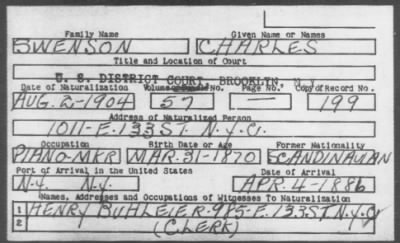 Family Name Given Name or Names
SWENSON CHARLES
Title and Location of Court
U. S. DISTRICT COURT, BROOKLYN, N.Y.
Date of Naturalization Volume No. Page No. Copy of Record No.
AUG. 2-1904 57 — 199
Address of Naturalized Person
1011-E.133 ST. N.Y.C.
Occupation Birth Date or Age Former Nationality
PIANO-MKR MAR.31-1870 SCANDINAVIAN
Port of Arrival in the United States Date of Arrival
N.Y. N.Y. APR.4-1886
Names, Addresses and Occupations of Witnesses To Naturalization
1 HENRY BUHLEIER-985-E.133 ST. N.Y.C.
2 (CLERK)